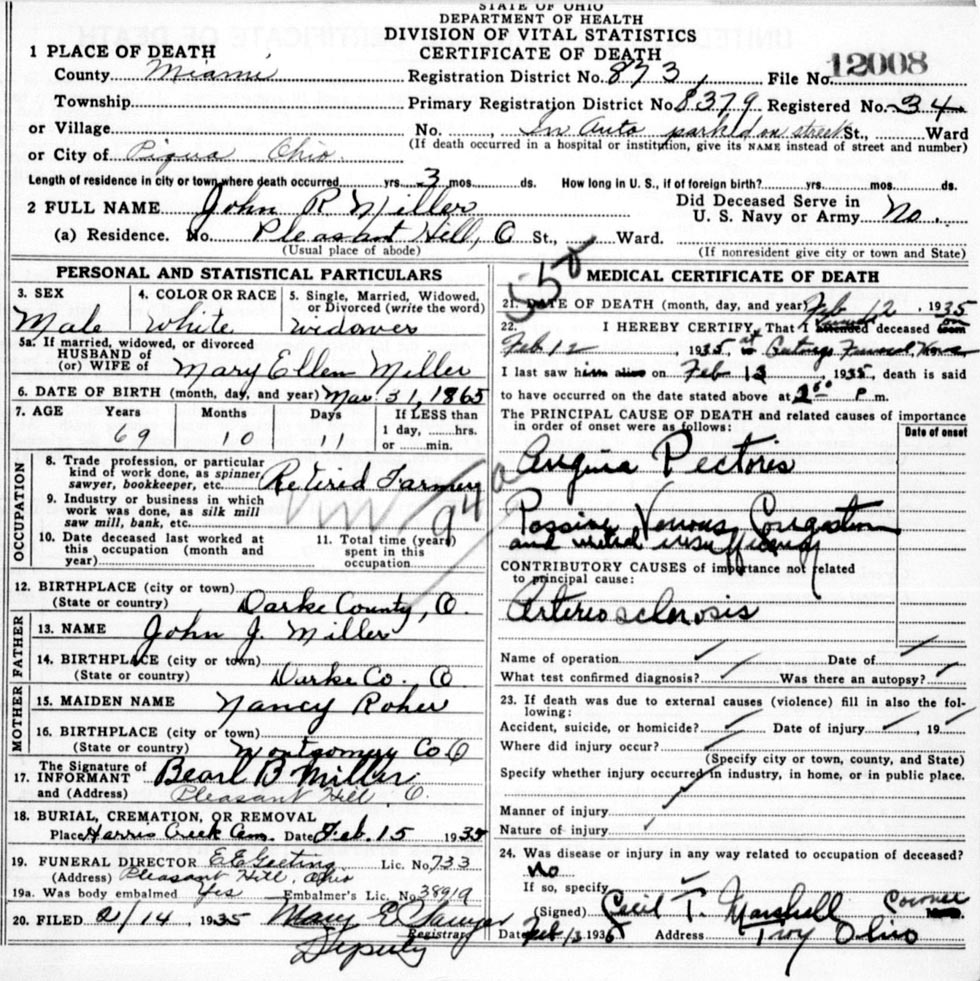 STATE OF OHIO
DEPARTMENT OF HEALTH
DIVISION OF VITAL STATISTICS
CERTIFICATE OF DEATH
1 PLACE OF DEATH
County Miami Registration District No. 873 File No. 12008
Township Primary Registration District No. 8379 Registered No. 34
or Village No. , In Auto parked on street St., Ward
or City of Piqua Ohio. (If death occurred in a hospital or institution, give its NAME instead of street and number)
Length of residence in city or town where death occurred yrs. 3 mos. ds. How long in U. S., if of foreign birth? yrs. mos. ds.
2 FULL NAME John R Miller Did Deceased Serve in U. S. Navy or Army No.
(a) Residence. No. Pleasant Hill, O St., Ward.
(Usual place of abode) (If nonresident give city or town and State)
PERSONAL AND STATISTICAL PARTICULARS
3. SEX 4. COLOR OR RACE 5. Single, Married, Widowed, or Divorced (write the word)
Male White Widower
5a. If married, widowed, or divorced
HUSBAND of
(or) WIFE of Mary Ellen Miller
6. DATE OF BIRTH (month, day, and year) Mar. 31, 1865
7. AGE Years Months Days If LESS than
1 day, hrs.
69 10 11 or min.
OCCUPATION
8. Trade profession, or particular
kind of work done, as spinner,
sawyer, bookkeeper, etc. Retired Farmer
9. Industry or business in which
work was done, as silk mill
saw mill, bank, etc.
94a
10. Date deceased last worked at
this occupation (month and
year)
11. Total time (years)
spent in this
occupation
12. BIRTHPLACE (city or town)
(State or country) Darke County, O.
FATHER
13. NAME John J. Miller
14. BIRTHPLACE (city or town)
(State or country) Darke Co., O
MOTHER
15. MAIDEN NAME Nancy Roher
16. BIRTHPLACE (city or town)
(State or country) Montgomery Co O
The Signature of
17. INFORMANT Bearl B Miller
and (Address) Pleasant Hill O.
18. BURIAL, CREMATION, OR REMOVAL
Place Harris Creek Cem. Date Feb. 15 1935
19. FUNERAL DIRECTOR E E Geeting Lic. No. 733
(Address) Pleasant Hill, Ohio
19a. Was body embalmed Yes Embalmer's Lic. No. 38919
20. FILED 2/14 1935 Mary E Sawyer
Registrar
Deputy
550
MEDICAL CERTIFICATE OF DEATH
21. DATE OF DEATH (month, day, and year) Feb 12, 1935
22. I HEREBY CERTIFY, That I deceased
Feb 12, 1935, at Funeral Home
I last saw him alive on Feb 13, 1935, death is said
to have occurred on the date stated above at P m.
The PRINCIPAL CAUSE OF DEATH and related causes of importance
in order of onset were as follows:
Date of onset
Angina Pectoris
Passive Venous Congestion
and mitral insufficiency
CONTRIBUTORY CAUSES of importance not related
to principal cause:
Arteriosclerosis
Name of operation Date of
What test confirmed diagnosis? Was there an autopsy?
23. If death was due to external causes (violence) fill in also the following:
Accident, suicide, or homicide? Date of injury , 19
Where did injury occur?
(Specify city or town, county, and State)
Specify whether injury occurred in industry, in home, or in public place.
Manner of injury
Nature of injury
24. Was disease or injury in any way related to occupation of deceased?
No
If so, specify
(Signed) Cecil T. Marshall Coroner
Date Feb 13 1935 Address Troy Ohio